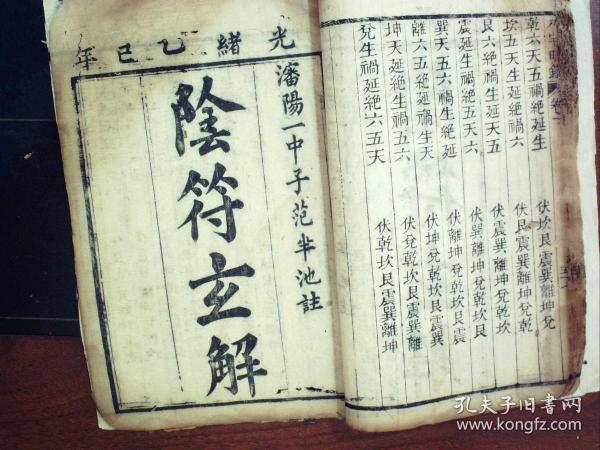 乾六天五禍絕延生 伏坎艮震巽離坤兌
坎五天生延絕禍六 伏艮震巽離坤兌乾
艮六絕禍生延天五 伏震巽離坤兌乾坎
震延生禍絕五天六 伏巽離坤兌乾坎艮
巽天五六禍生絕延 伏離坤兌乾坎艮震
離六五絕延禍生天 伏坤兌乾坎艮震巽
坤天延絕生禍五六 伏兌乾坎艮震巽離
兌生禍延絕六五天 伏乾坎艮震巽離坤
光緒乙巳年
瀋陽一中子范半池註
陰符玄解
孔夫子旧书网
www.kongfz.com